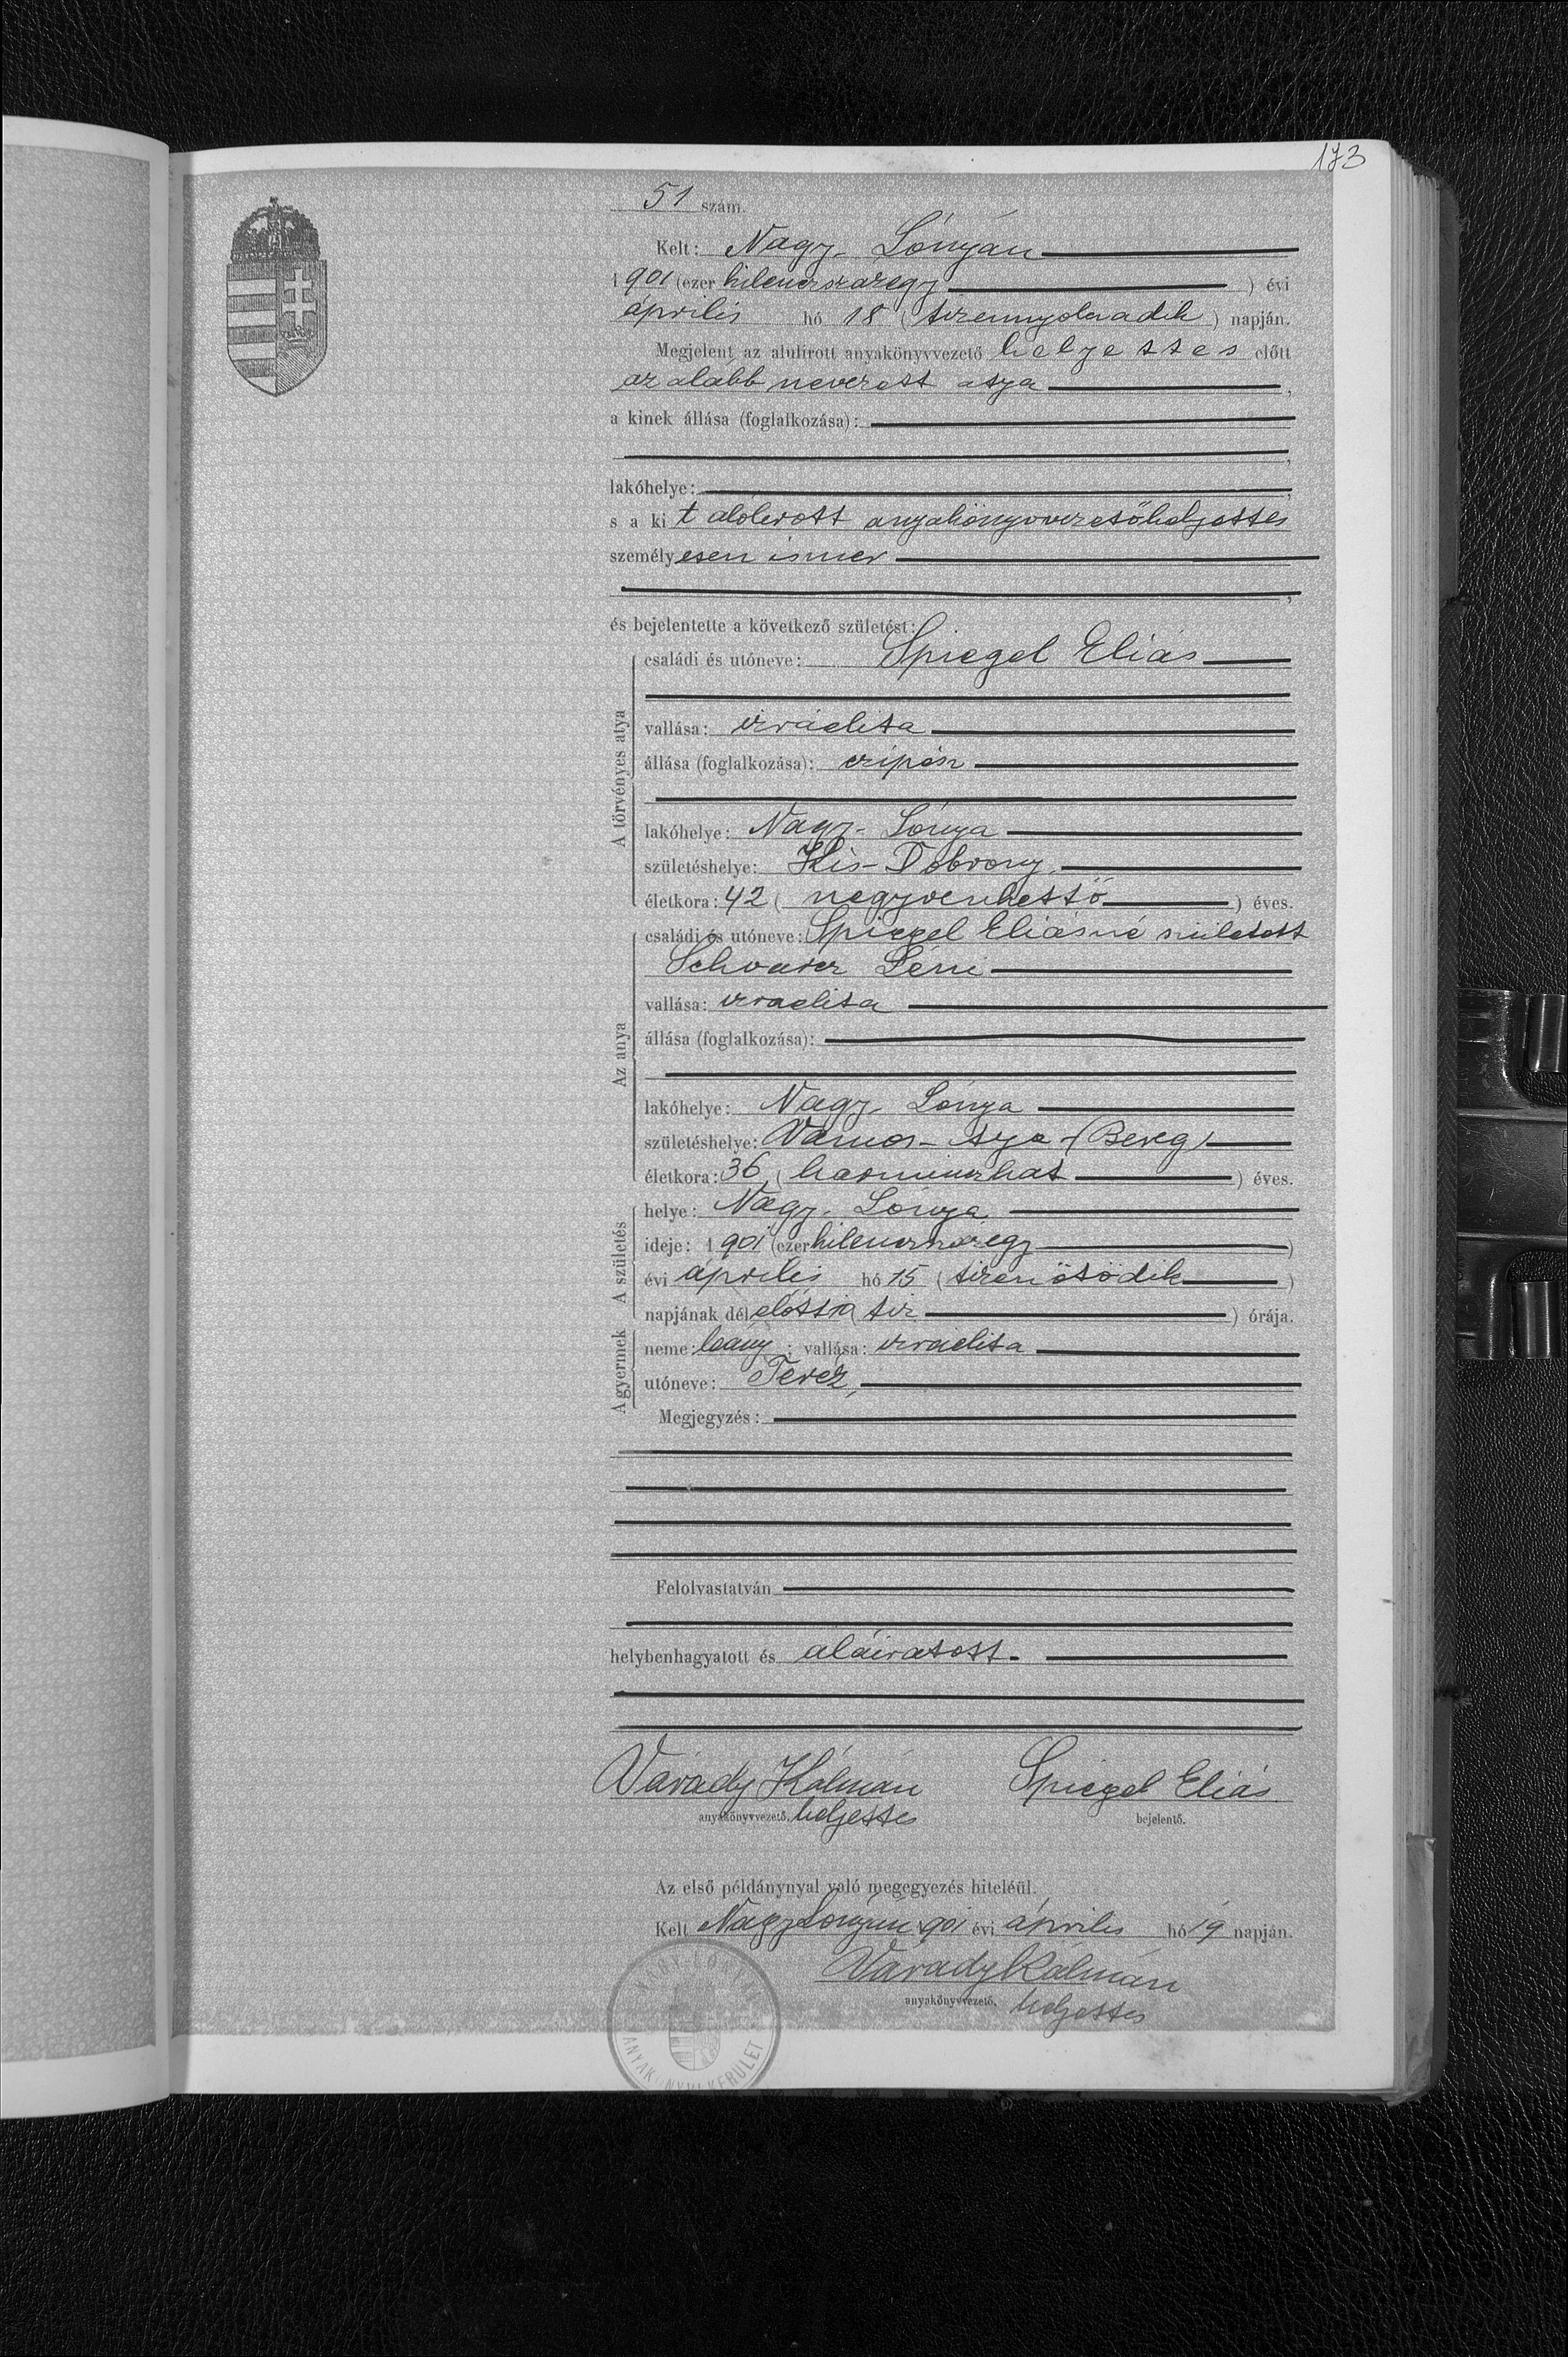 173
51 szám.
Kelt: Nagy-Lónyán
1901 (ezer kilenczszázegy) évi
április hó 18 (tizennyolczadik) napján.
Megjelent az alulírott anyakönyvvezető helyettes előtt
az alább nevezett atya,
a kinek állása (foglalkozása):
,
lakóhelye: ,
s a kit alólirott anyakönyvvezetőhelyettes
személyesen ismer
,
és bejelentette a következő születést:
A törvényes atya
családi és utóneve: Spiegel Eliás
vallása: izráelita
állása (foglalkozása): czipész
lakóhelye: Nagy-Lónya
születéshelye: Kis-Dobrony
életkora: 42 (negyvenkettő) éves.
Az anya
családi és utóneve: Spiegel Eliásné született
Schvarcz Léni
vallása: izraelita
állása (foglalkozása):
lakóhelye: Nagy-Lónya
születéshelye: Vámos-Atya (Bereg)
életkora: 36 (harminczhat) éves.
A születés
helye: Nagy-Lónya
ideje: 1901 (ezer kilenczszázegy)
évi április hó 15 (tizenötödik)
napjának délelőtti 10 (tiz) órája.
A gyermek
neme: leány; vallása: izráelita
utóneve: Teréz,
Megjegyzés:
Felolvastatván
helybenhagyatott és aláiratott.
Várady Kálmán Spiegel Eliás
anyakönyvvezető. helyettes bejelentő.
Az első példánynyal való megegyezés hiteléül.
Kelt Nagy Lónyán 1901 évi április hó 19 napján.
Várady Kálmán
anyakönyvvezető. helyettes
NAGY-LÓNYAI
ANYAKÖNYVI KERÜLET